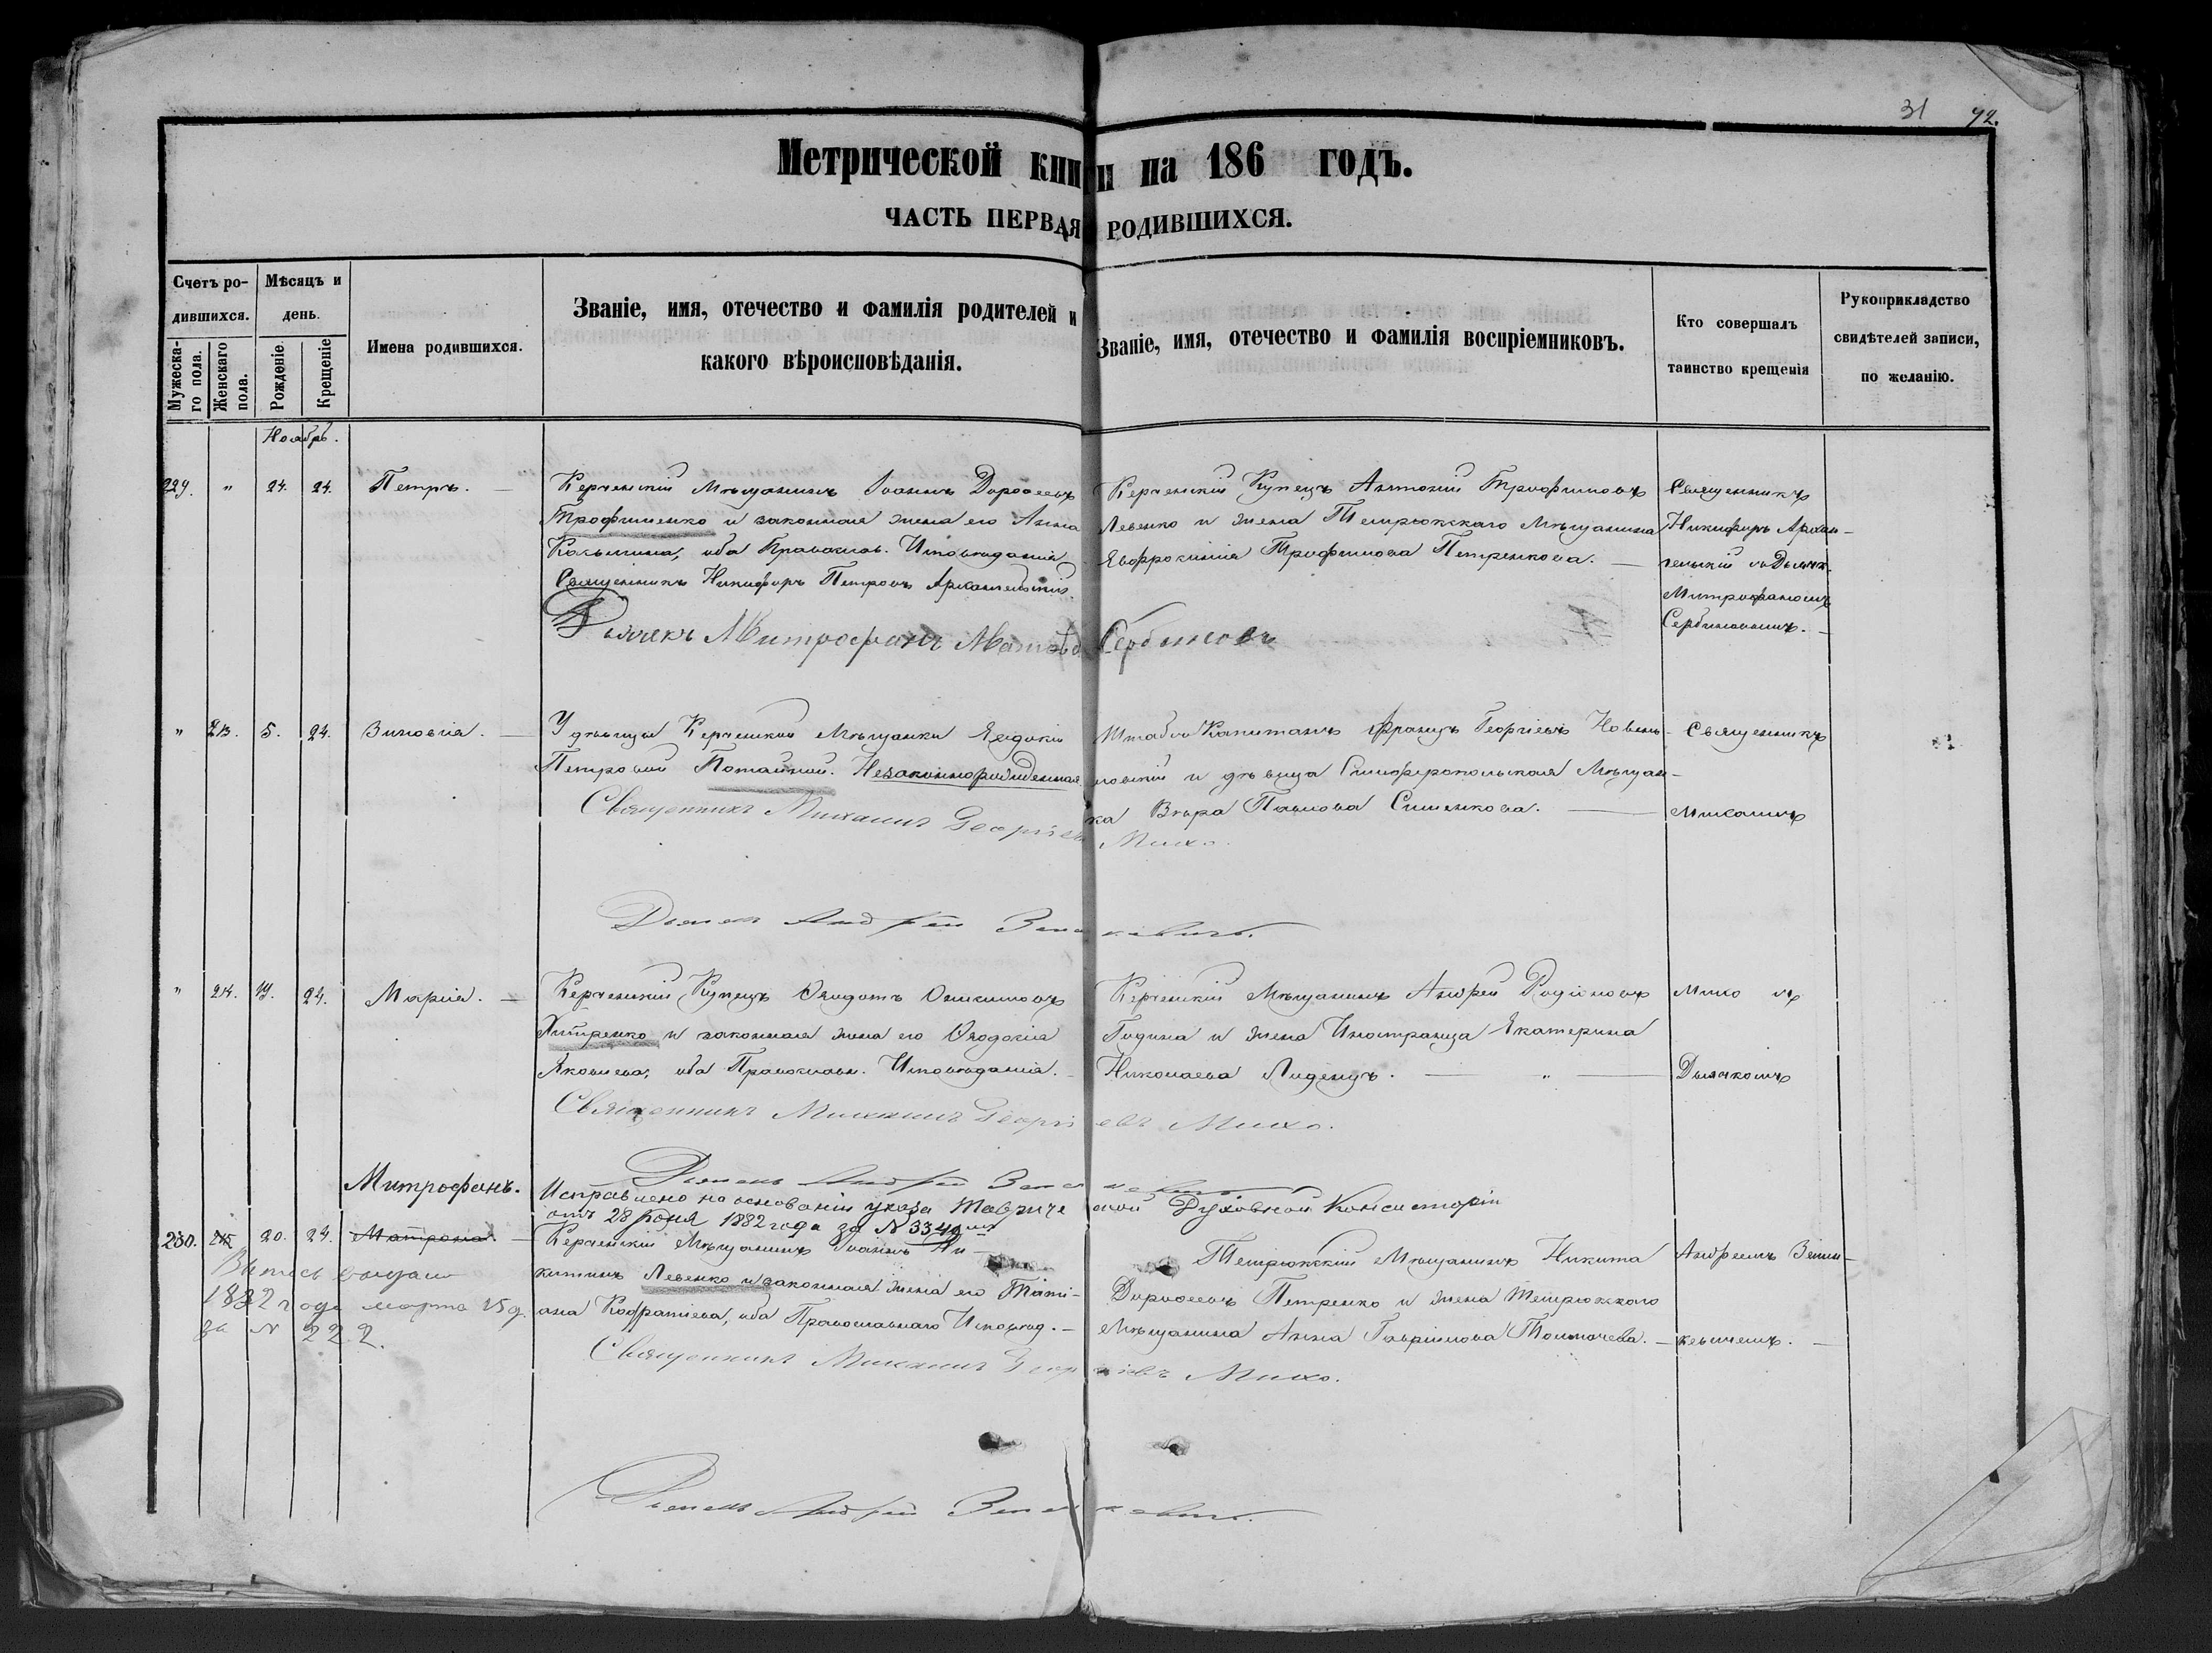 31 92.
Метрической книги на 186 годъ.
ЧАСТЬ ПЕРВАЯ РОДИВШИХСЯ.
Счетъ ро-
дившихся.
Мужеска-
го пола.
Женскаго
пола.
Мѣсяцъ и
день.
Рожденіе.
Крещеніе
Имена родившихся.
Званіе, имя, отечество и фамилія родителей и
какого вѣроисповѣданія.
Званіе, имя, отечество и фамилія воспріемниковъ.
Кто совершалъ
таинство крещенія
Рукоприкладство
свидѣтелей записи,
по желанію.
Ноябрь.
229. " 24. 24. Петръ. —
Керченскій Мѣщанинъ Іоаннъ Дороѳеевъ
Трофименко и законная жена его Анна
Козьмина, оба Православ. Исповѣданія
Священникъ Никифоръ Петровъ Архангельскій.
Дьячекъ Митрофанъ Матвѣевъ Сербиновъ
Керченскій Купецъ Антоній Трофимовъ
Левенко и жена Темрюкскаго Мѣщанина
Евфросинія Трофимова Петренкова. —
Священникъ
Никифоръ Архан-
гельскій съ Дьячк.
Митрофаномъ
Сербиновымъ. —
" 213. 5. 24. Зиновія. —
У дѣвицы Керченской Мѣщанки Евдокіи
Петровой Потайной. Незаконнорожденная
Священникъ Михаилъ Георгіевъ Михо.
Дьячекъ Андрей Зенкевичъ.
Штабсъ Капитанъ Францъ Георгіевъ
и дѣвица Симферопольская Мѣщан-
ка Вѣра Павлова Симонкова. —
Священникъ
Михаилъ
" 214. 19. 24. Марія. —
Керченскій Купецъ Ѳеодотъ Онисимовъ
Хитренко и законная жена его Ѳеодосія
Яковлева, оба Православн. Исповѣданія. —
Священникъ Михаилъ Георгіевъ Михо.
Дьячекъ Андрей Зенкевичъ
Керченскій Мѣщанинъ Андрей Родіоновъ
Година и жена Иностранца Екатерина
Николаева Лиденцъ. — " —
Михо съ
Дьячкомъ
Митрофанъ.
Исправлено на основаніи указа Таврической Духовной Консисторіи
отъ 28 Іюня 1882 года за № 3340мъ
230. 215 20. 24. Матрона. —
Керченскій Мѣщанинъ Іоаннъ Ни-
китинъ Левенко и законная жена его Тати-
ана Кодратіева, оба Православнаго Исповѣд. —
Священникъ Михаилъ Георгіевъ Михо.
Дьячекъ Андрей Зенкевичъ.
Темрюкскій Мѣщанинъ Никита
Дороѳеевъ Петренко и жена Темрюкскаго
Мѣщанина Анна Гавріилова Толмачева. —
Андреемъ Зень-
кевичемъ. —
Выпись выдана
1882 года марта 15 д.
за № 222.